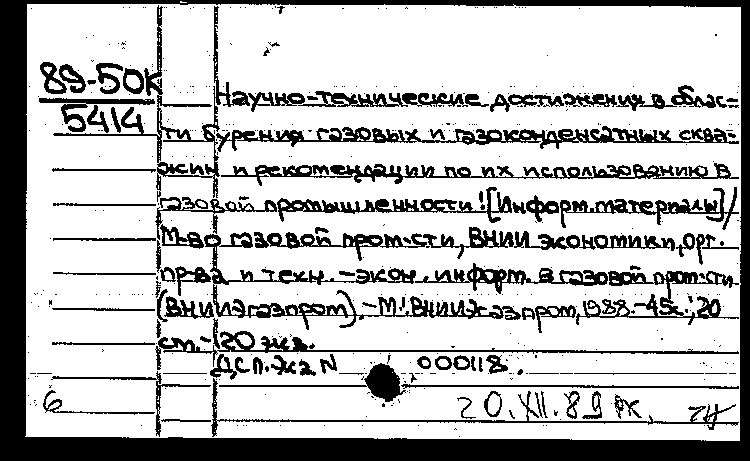 89-50К
5414
Научно-технические достижения в облас-
ти бурения газовых и газоконденсатных сква-
жин и рекомендации по их использованию в
газовой промышленности: [Информ. материалы] /
М-во газовой пром-сти, ВНИИ экономики, орг.
пр-ва и техн.-экон. информ. в газовой пром-сти
(ВНИИЭгазпром). - М.: ВНИИЭгазпром, 1988. - 45с.; 20
см. - 120 экз.
ДСП. Экз. N 000118.
6
20.XII.89